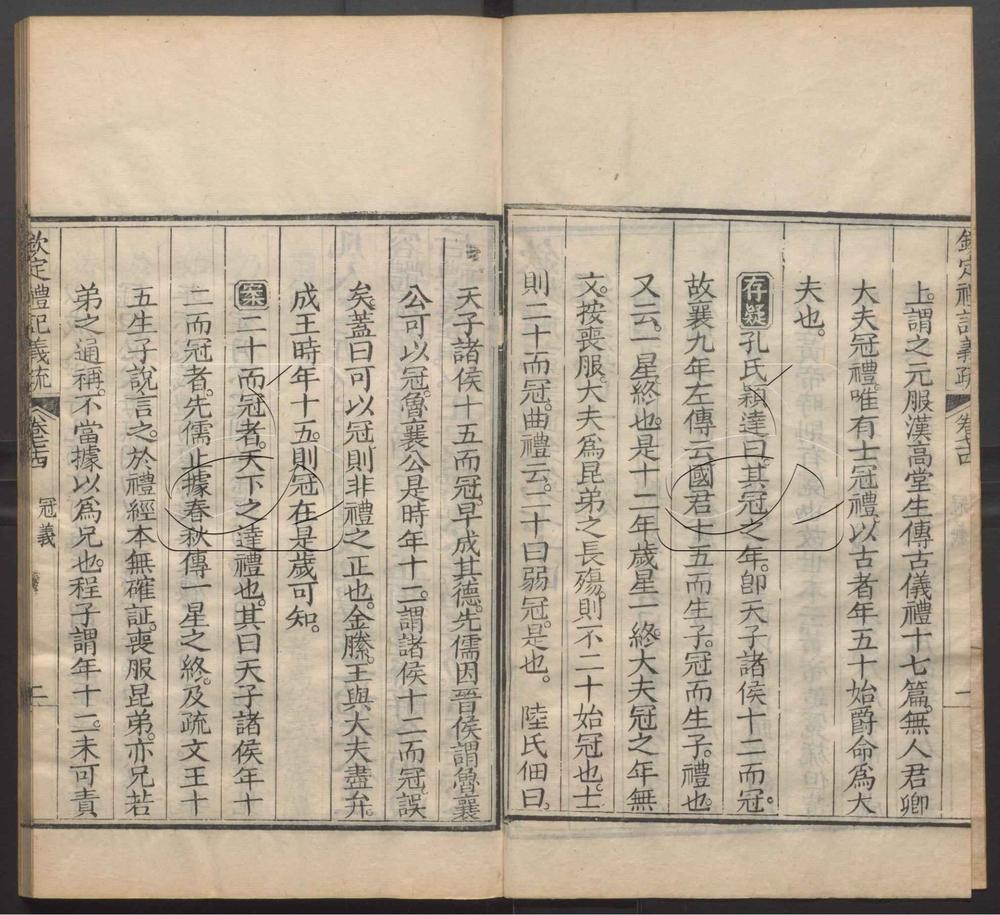 欽定禮記義疏 卷七十四 冠義 一
上謂之元服漢高堂生傳古儀禮十七篇。無人君卿
大夫冠禮。唯有士冠禮。以古者年五十始爵命爲大
夫也。
存疑 孔氏穎達曰。其冠之年。卽天子諸侯十二而冠。
故襄九年左傳云。國君十五而生子。冠而生子。禮也。
又云。一星終也。是十二年歲星一終。大夫冠之年無
文。按喪服。大夫爲昆弟之長殤。則不二十始冠也。士
則二十而冠。曲禮云。二十曰弱冠。是也。 陸氏佃曰。
天子諸侯十五而冠。早成其德。先儒因晉侯謂魯襄
公可以冠。魯襄公是時年十二。謂諸侯十二而冠。誤
矣。蓋曰可以冠則非禮之正也。金縢。王與大夫盡弁。
成王時年十五。則冠在是歲可知。
案 二十而冠者。天下之達禮也。其曰天子諸侯年十
二而冠者。先儒止據春秋傳一星之終。及疏文王十
五生子說言之。於禮經本無確証。喪服昆弟。亦兄若
弟之通稱。不當據以爲兄也。程子謂年十二。未可責
欽定禮記義疏 卷七十四 冠義 二